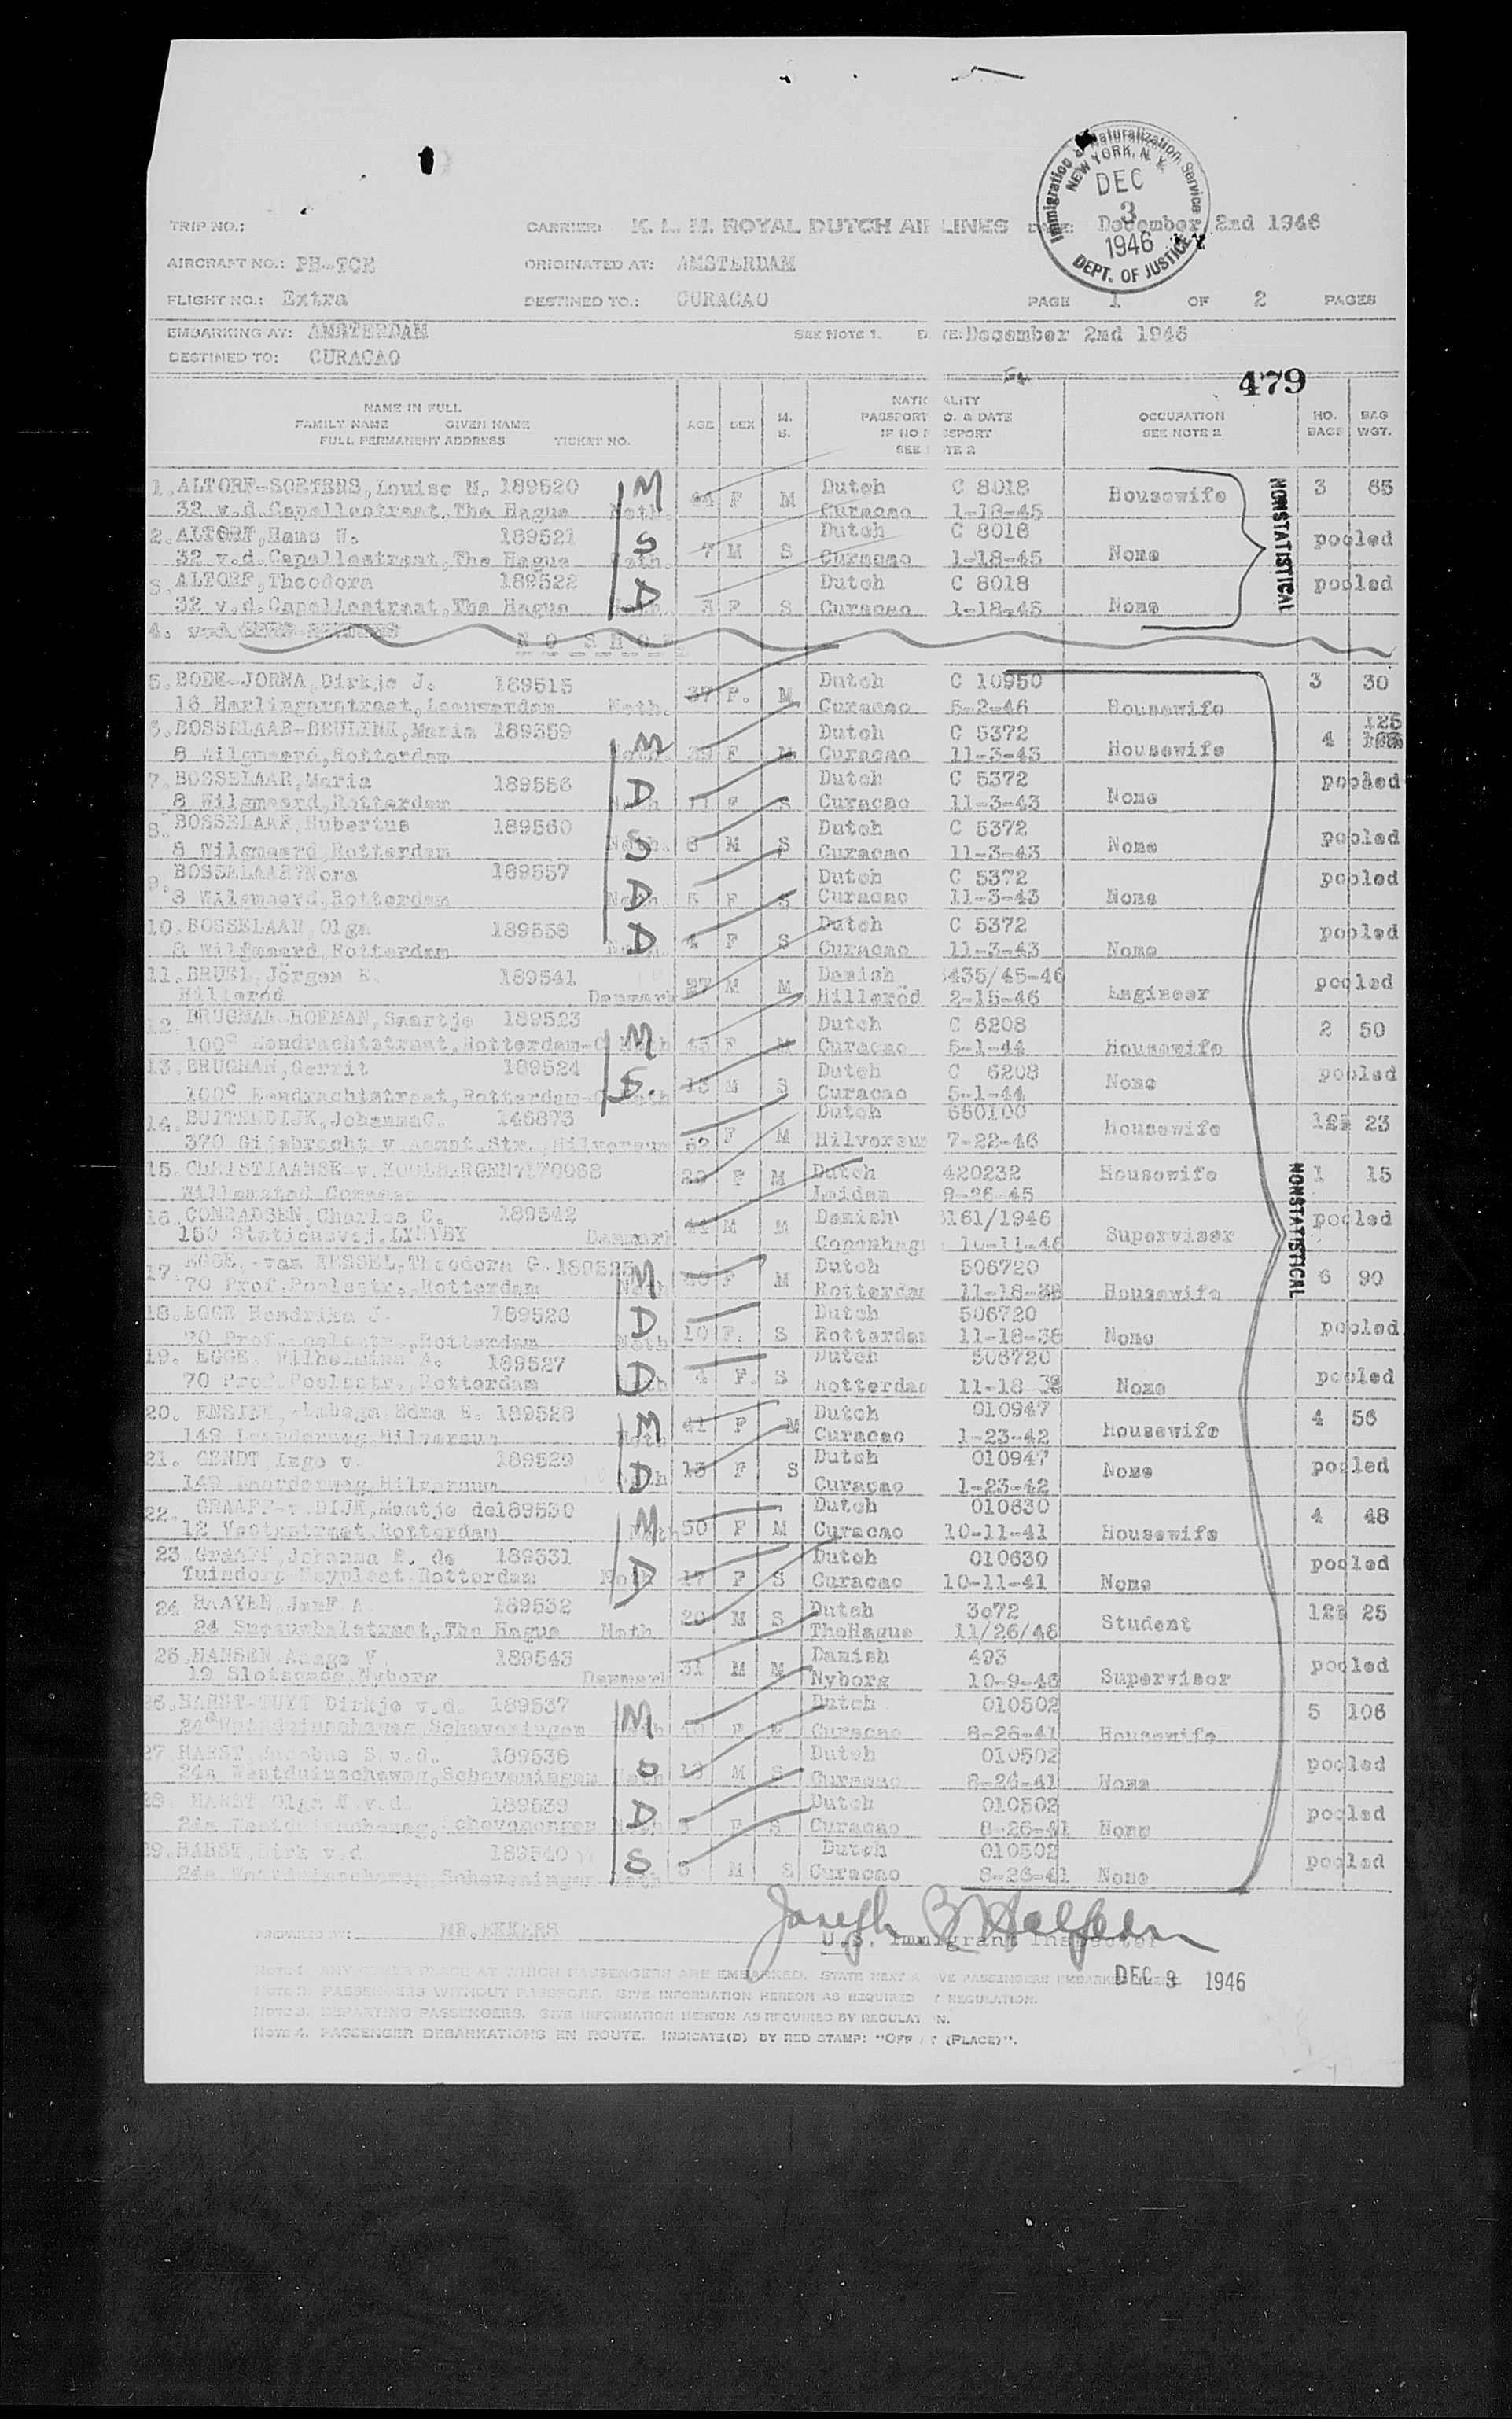 Immigration & Naturalization Service
NEW YORK, N. Y.
DEC
3
1946
DEPT. OF JUSTICE
TRIP NO.: CARRIER: K. L. M. ROYAL DUTCH AIRLINES December 2nd 1946
AIRCRAFT NO.: PH-TCE ORIGINATED AT: AMSTERDAM
FLIGHT NO.: Extra DESTINED TO.: CURACAO PAGE 1 OF 2 PAGES
EMBARKING AT: AMSTERDAM SEE NOTE 1. December 2nd 1946
DESTINED TO: CURACAO
479
NAME IN FULL
FAMILY NAME GIVEN NAME
FULL PERMANENT ADDRESS TICKET NO. AGE SEX M. S. OCCUPATION SEE NOTE 2 NO. BAGS BAG WGT.
1. ALTORF-SOETERS, Louise M. 189520 M 44 F M Dutch C 8018 Housewife 3 65
32 v.d.Capellestraat, The Hague Neth. Curacao 1-18-45
2. ALTORF, Hans W. 189521 S 7 M S Dutch C 8018 None pooled
32 v.d.Capellestraat, The Hague Neth. Curacao 1-18-45
3. ALTORF, Theodora 189522 D 3 F S Dutch C 8018 None pooled
32 v.d.Capellestraat, The Hague Neth. Curacao 1-18-45
NONSTATISTICAL
4. NO SHOW
5. BODE-JORNA, Dirkje J. 189515 37 F. M Dutch C 10950 Housewife 3 30
16 Harlingerstraat, Leeuwarden Neth. Curacao 5-2-46
6. BOSSELAAR-BEULINK, Maria 189559 M F M Dutch C 5372 Housewife 4 125
8 Wilgmaard, Rotterdam Neth. Curacao 11-3-43
7. BOSSELAAR, Maria 189556 D 11 F S Dutch C 5372 None pooled
8 Wilgmaard, Rotterdam Neth Curacao 11-3-43
8. BOSSELAAR, Hubertus 189560 S M S Dutch C 5372 None pooled
8 Wilgmaard, Rotterdam Neth. Curacao 11-3-43
9. BOSSELAAR, Nora 189557 D 5 F S Dutch C 5372 None pooled
8 Wilgmaard, Rotterdam Neth. Curacao 11-3-43
10. BOSSELAAR, Olga 189558 D 4 F S Dutch C 5372 None pooled
8 Wilgmaard, Rotterdam Neth. Curacao 11-3-43
11. BRUEL, Jörgen E. 189541 27 M M Danish 435/45-46 Engineer pooled
Hilleröd Denmark Hilleröd 2-15-46
12. BRUGMAN-HOFMAN, Saartje 189523 M 45 F M Dutch C 6208 Housewife 2 50
100c Eendrachtstraat, Rotterdam-C Neth Curacao 5-1-44
13. BRUGMAN, Gerrit 189524 S. 13 M S Dutch C 6208 None pooled
100c Eendrachtstraat, Rotterdam-C Neth Curacao 5-1-44
14. BUITENDIJK, JohannaC. 146873 52 F M Dutch 660100 Housewife 23
370 Gijsbrecht v.Aemst.Str., Hilversum Hilversum 7-22-46
15. CHRISTIAANSE-v. 170068 F M Dutch 420232 Housewife 1 15
Willemstad Curacao Leiden 9-26-45
16. CONRADSEN, Charles C. 189542 44 M M Danish 161/1946 Supervisor pooled
150 Stationsvej, LYNGBY Denmark Copenhag 10-11-46
17. EGGE,-van KESSEL, Theodora G. 189525 M F M Dutch 506720 Housewife 6 90
70 Prof.Poelsstr., Rotterdam Neth Rotterdam 11-18-38
18. EGGE Hendrika J. 189526 D 10 F. S Dutch 506720 None pooled
70 Prof.Poelsstr., Rotterdam Neth Rotterdam 11-18-38
19. EGGE, Wilhelmina A. 189527 D 4 F. S Dutch 506720 None pooled
70 Prof.Poelsstr., Rotterdam Neth Rotterdam 11-18-38
NONSTATISTICAL
20. Edna E. 189528 M 41 F M Dutch 010947 Housewife 4 56
149 Laarderweg Hilversum Neth Curacao 1-23-42
21. GENDT, Inge v. 189529 D 13 F S Dutch 010947 None pooled
149 Laarderweg, Hilversum Neth Curacao 1-23-42
22. GRAAFF-v.DIJK, Maatje de 189530 M 50 F M Dutch 010630 Housewife 4 48
12 Vechtstraat Rotterdam Neth Curacao 10-11-41
23. GRAAFF, Johanna de 189531 D 17 F S Dutch 010630 None pooled
Tuindorp Heyplaat Rotterdam Neth Curacao 10-11-41
24 HAAYEN, A. 189532 20 M S Dutch 3072 Student 25
The Hague Neth. TheHague 11/26/46
25. HANSEN, Aaage V. 189543 31 M M Danish 493 Supervisor pooled
19 Slotsgade Nyborg Denmark Nyborg 10-9-46
26. HARST-TUYT Dirkje v.d. 189537 M 40 F M Dutch 010502 Housewife 5 106
24a Westduinscheweg, Scheveningen Neth Curacao 8-26-41
27. HARST, Jacobus S.v.d. 189538 S M S Dutch 010502 None pooled
24a Westduinscheweg, Scheveningen Neth Curacao 8-26-41
28. HARST Olga v.d. 189539 D F S Dutch 010502 None pooled
24a Westduinscheweg, Scheveningen Neth Curacao 8-26-41
29. HARST, Dirk v d 189540 S M S Dutch 010502 None pooled
24a Westduinscheweg Scheveningen Neth Curacao 8-26-41
PREPARED BY: MR. EKKERS Joseph B. Halpern
U.S. Immigrant Inspector
DEC 3 1946
NOTE 1. ANY OTHER PLACE AT WHICH PASSENGERS ARE EMBARKED. STATE NEXT
NOTE 2. PASSENGERS WITHOUT PASSPORT. GIVE INFORMATION HEREON AS REQUIRED REGULATION.
NOTE 3. DEPARTING PASSENGERS. GIVE INFORMATION HEREON AS REQUIRED BY REGULATION.
NOTE 4. PASSENGER DEBARKATIONS EN ROUTE. INDICATE(D) BY RED STAMP: "OFF (PLACE)".